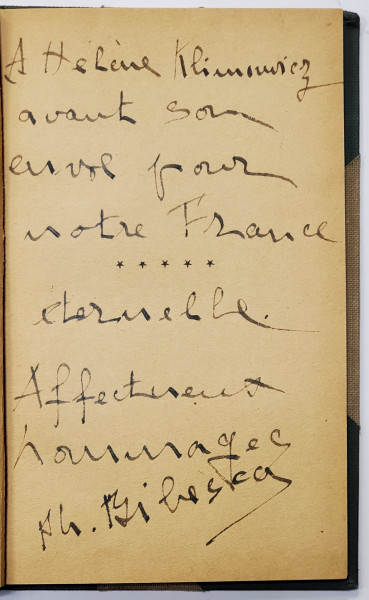 A Hélène Klimowicz
avant son
envol pour
notre France
* * * * *
éternelle.
Affectueux
hommages
Th. Bibesco